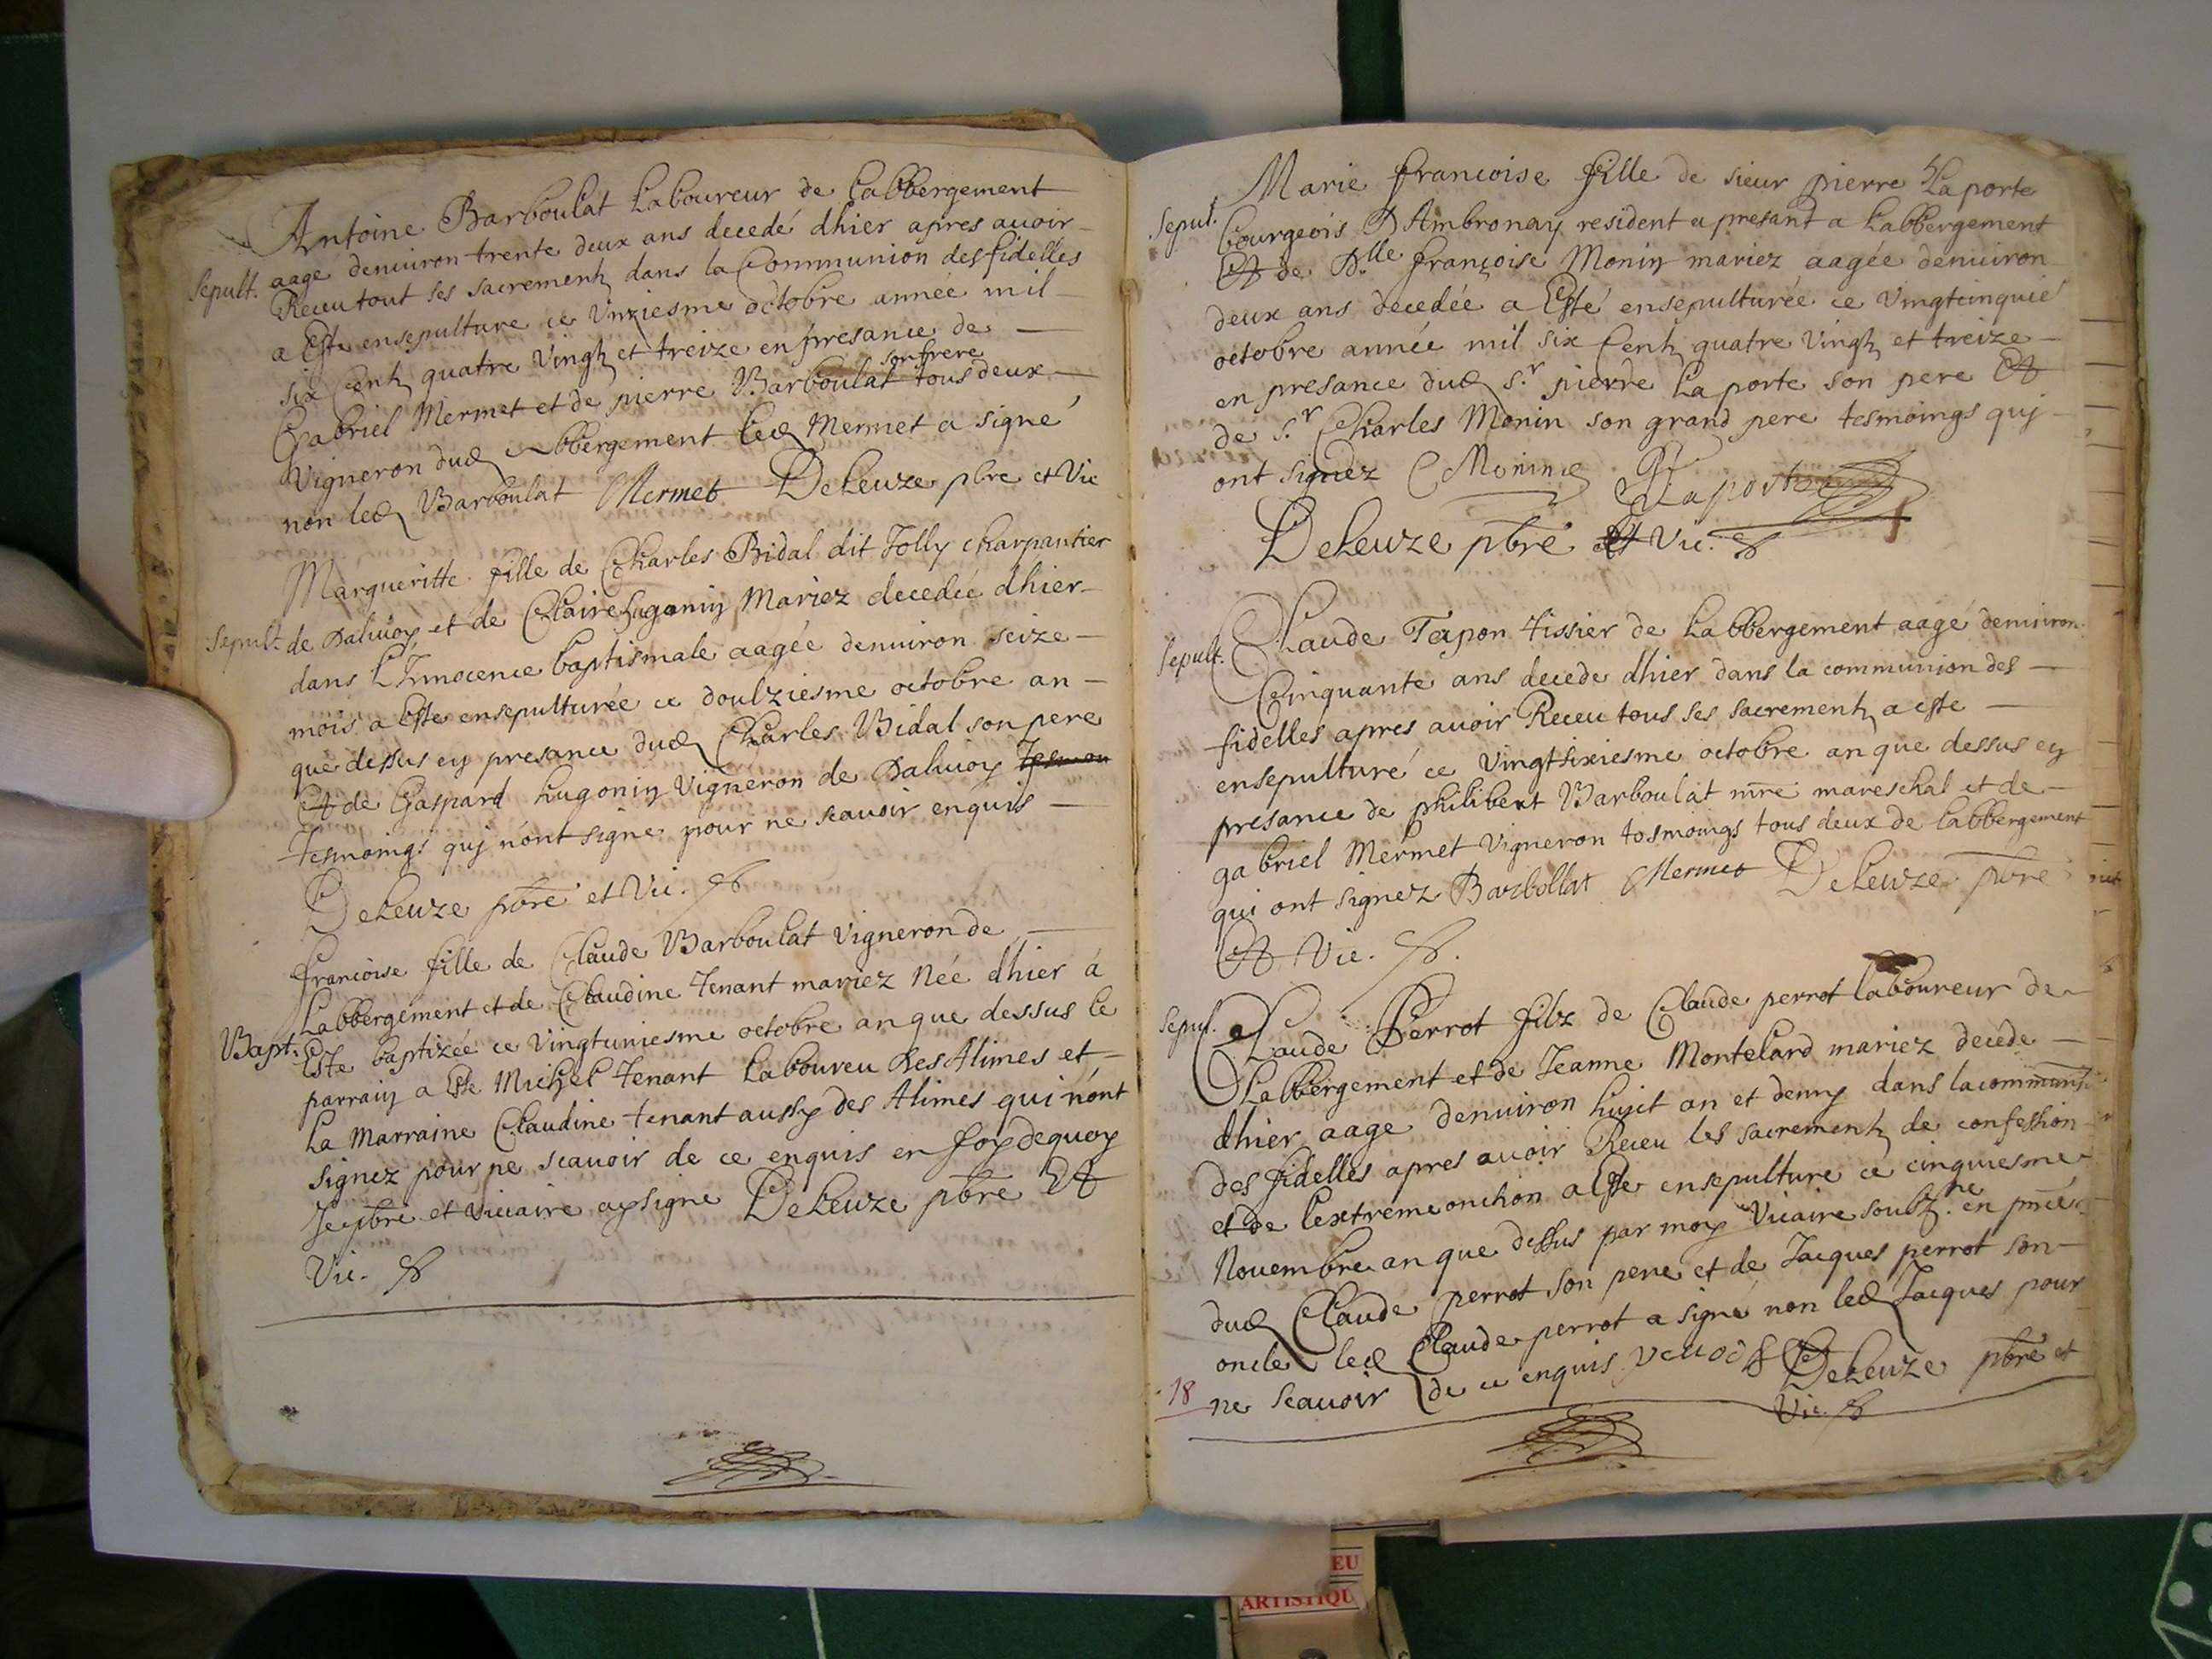 Antoine Barboulat Laboureur de Labbergement
Sepult. aage denuiron trente deux ans decedé dhier apres auoir
Receu tout ses sacrements dans la Communion des fidelles
a Este ensepulture ce Unziesme octobre année mil
six Cents quatre Vingts et treize en presance de
Gabriel Mermet et de pierre Barboulat son frere tous deux
Vigneron dud Abbergement led Mermet a signé
non led Barboulat Mermet DeLeuze pbre et Vic
Margueritte fille de Charles Bidal dit Jolly charpantier
Sepult. de Daluoy et de Claire hugonin Mariez decedée dhier
dans L'Innocence baptismale aagée denuiron seize
mois a Este ensepulturée ce doulziesme octobre an
que dessus en presance dud Charles Bidal son pere
Et de Gaspard hugonin Vigneron de Daluoy Tesmoin
Tesmoings quj n'ont signe pour ne scauoir enquis
DeLeuze pbre et Vic.
francoise fille de Claude Barboulat Vigneron de
Labbergement et de Claudine Tenant mariez Née dhier à
Bapt. Este baptizée ce Vingtuniesme octobre an que dessus le
parrain a Este Michel Tenant Laboureu des Alimes et
La Marraine Claudine tenant aussy des Alimes qui n'ont
signez pour ne scauoir de ce enquis en foy dequoy
Je pbre et vicaire ay signe DeLeuze pbre Et
Vic.
Marie francoise fille de sieur pierre Laporte
Sepul. Bourgeois D'Ambronay resident a presant a Labbergement
Et de Dlle françoise Monin mariez aagée denuiron
deux ans decedée a Esté ensepulturée ce Vingtcinquie
octobre année mil six Cents quatre Vingts et treize
en presance dud s.r pierre Laporte son pere Et
de s.r Charles Monin son grand pere tesmoings quj
ont signez CMonin Laporte
DeLeuze pbre et Vic.
Sepult. Claude Tapon tissier de Labbergement aagé denuiron
Cinquante ans decede dhier dans la communion des
fidelles apres auoir Receu tous ses sacrements a este
ensepulturé ce Vingtsixiesme octobre an que dessus en
presance de philibert Barboulat mre mareschal et de
gabriel Mermet Vigneron tesmoings tous deux de Labbergement
qui ont signez Barbollat Mermet DeLeuze pbre
Et Vic.
Sepul. Claude Perrot filz de Claude perrot laboureur de
Labbergement et de Jeanne Montelard mariez decede
dhier aage denuiron huict an et demy dans la communi
des fidelles apres auoir Receu les sacrements de confession
et de l'extreme onction a Este ensepulture ce cinquiesme
Nouembre an que dessus par moy Vicaire soubz.ne en prñce
dud Claude perrot son pere et de Jacques perrot son
oncle led Claude perrot a signé non led Jacques pour
18 ne Scauoir de ce enquis DeLeuze pbre et
Vic.
EU
ARTISTIQU